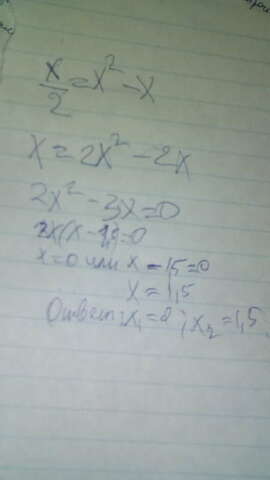 x/2 = x² - x
x = 2x² - 2x
2x² - 3x = 0
2x(x - 1,5 = 0
x = 0 или x - 1,5 = 0
x = 1,5
Ответ: x₁ = 0 ; x₂ = 1,5